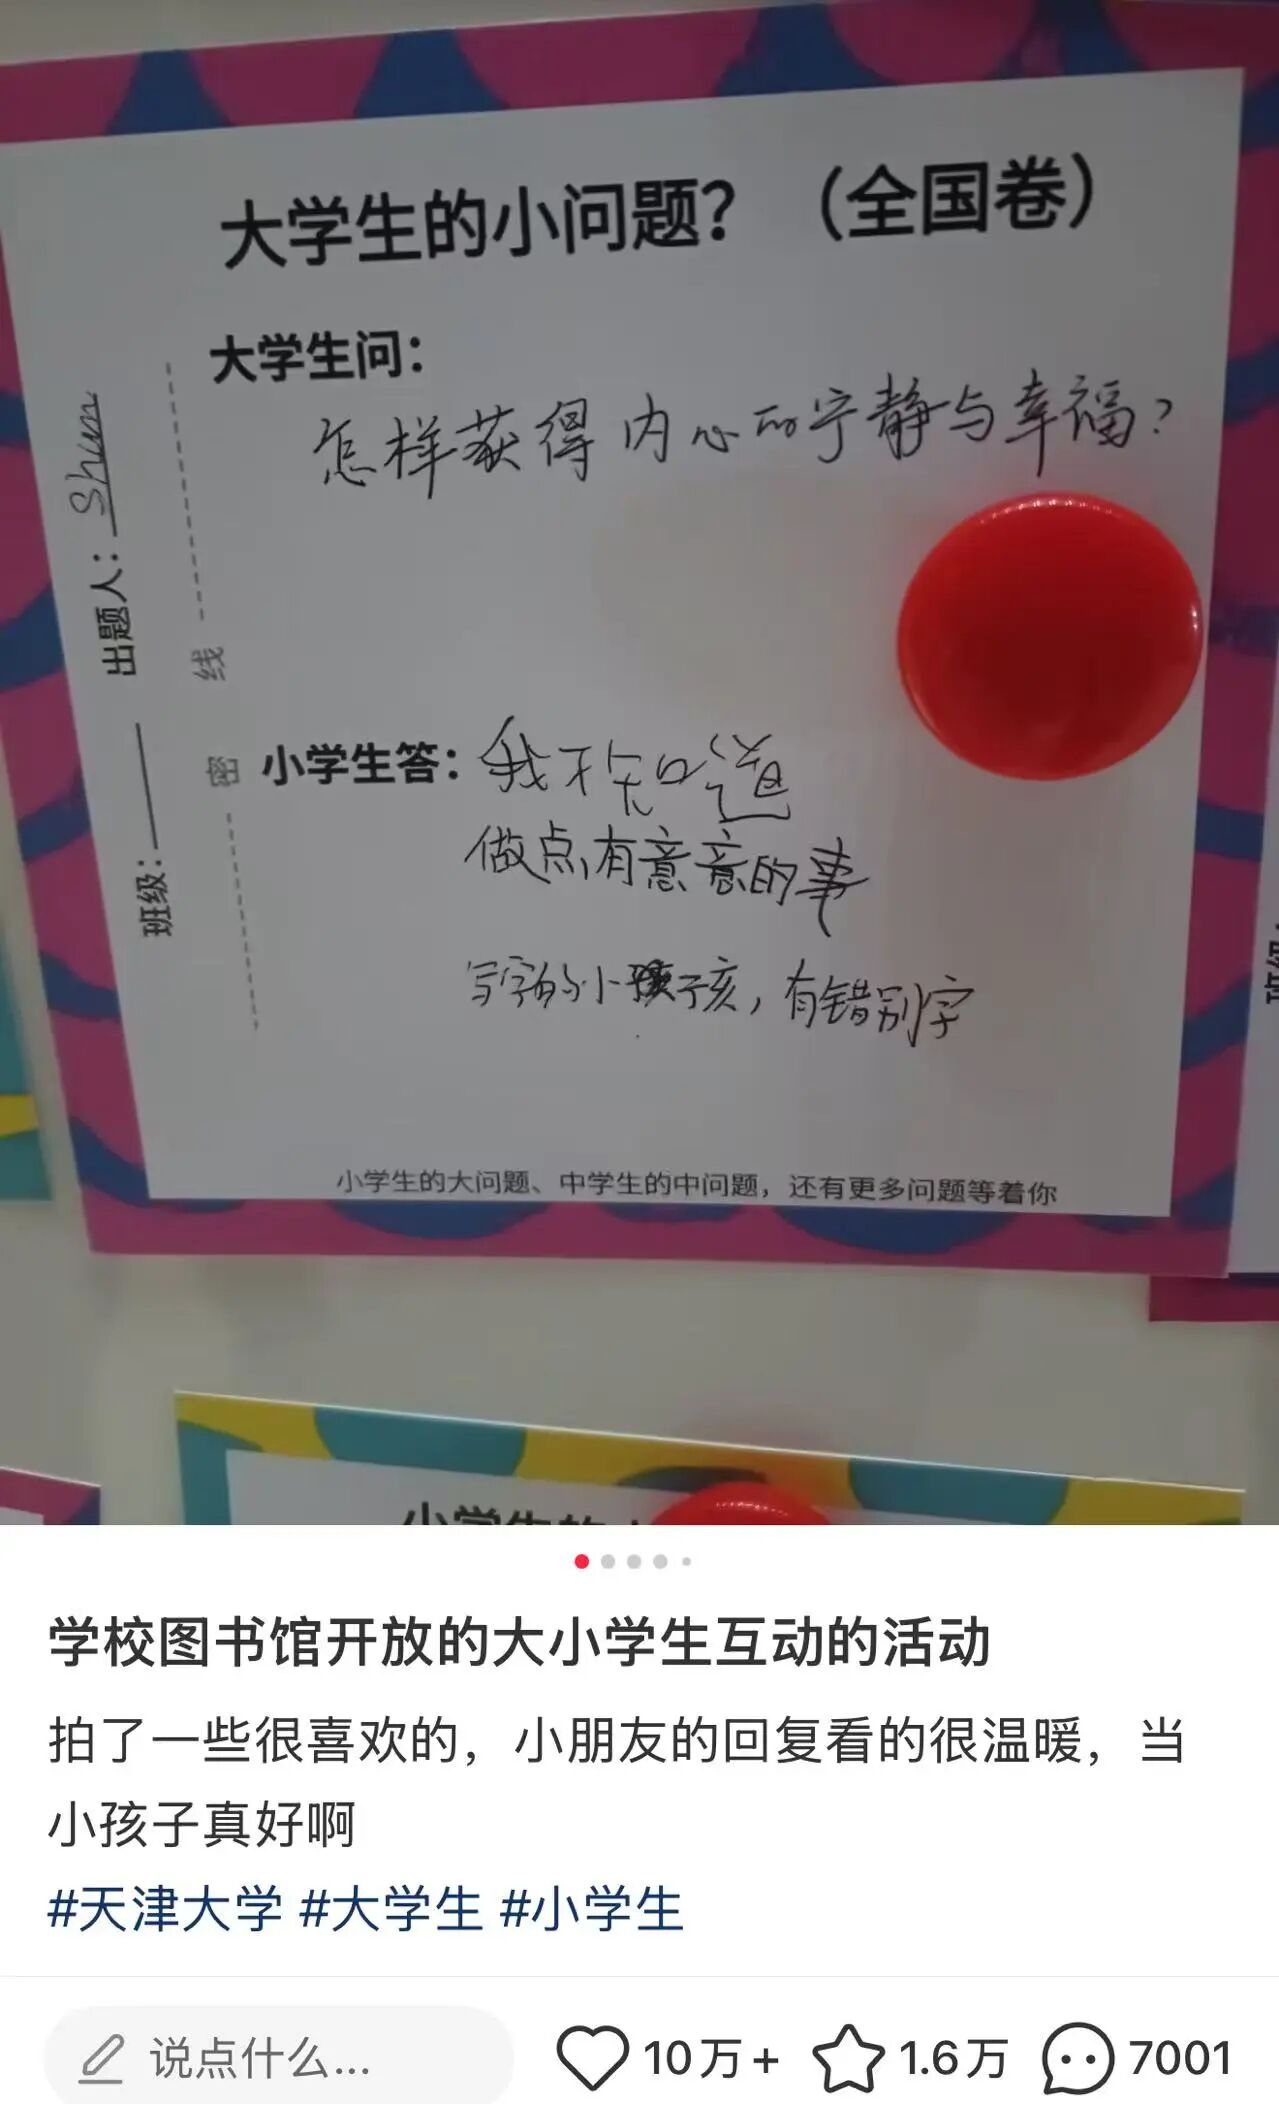 大学生的小问题？（全国卷）
大学生问：
怎样获得内心的宁静与幸福？
出题人：Shun
班级：
线
密
小学生答：我不知道
做点有意意的事
写字的小孩子孩，有错别字
小学生的大问题、中学生的中问题，还有更多问题等着你
小学生的
学校图书馆开放的大小学生互动的活动
拍了一些很喜欢的，小朋友的回复看的很温暖，当
小孩子真好啊
#天津大学 #大学生 #小学生
说点什么...
10万+
1.6万
7001